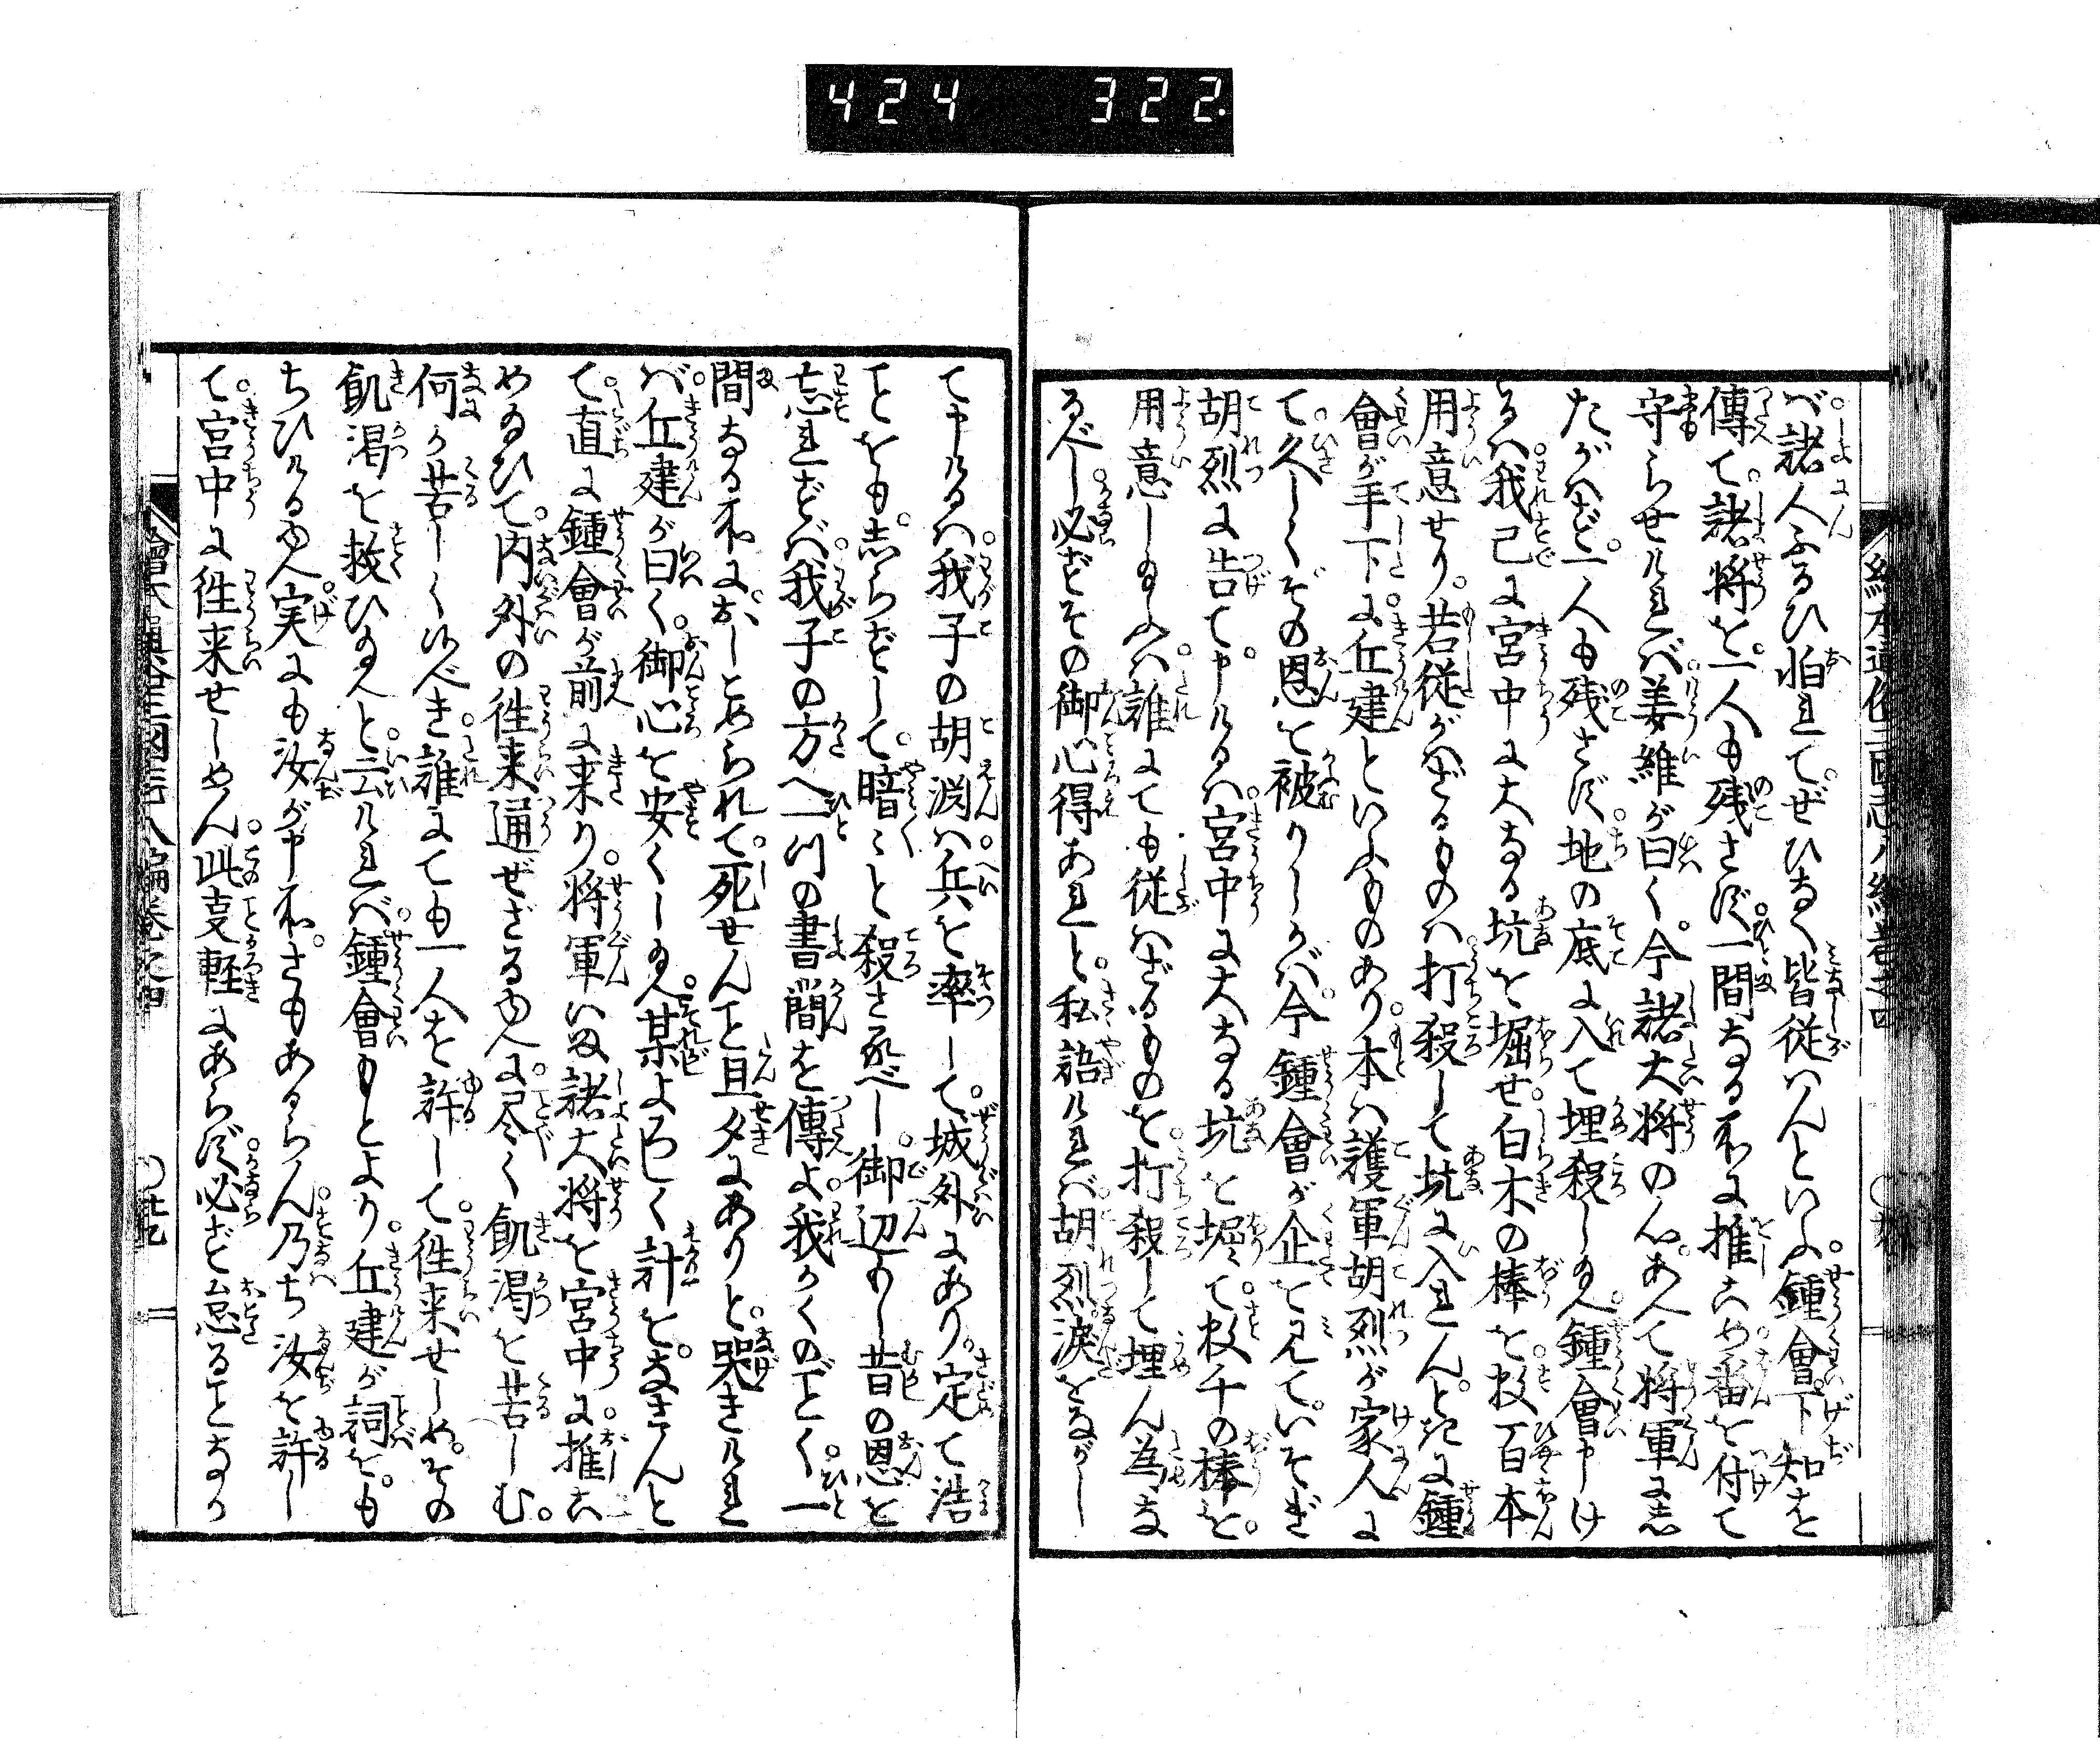 424 322.
べ諸人ふるひ怕れてぜひなく皆従はんといふ鍾會下知を
傳て諸将を一人も残さず一間なる所に推こめ番を付て
守らせければ姜維が曰く今諸大将の人あへて将軍に志
たがはず一人も残さず地の底に入て埋殺し給へ鍾會申け
るは我已に宮中に大なる坑を堀せ白木の棒を数百本
用意せり若従がはざるものは打殺して坑に入れんと時に鍾
會が手下に丘建といふものあり本は護軍胡烈が家人に
て久しくその恩を被りしかば今鍾會が企を見ていそぎ
胡烈に告て申けるは宮中に大なる坑を堀て数千の棒を
用意し給ふは誰にても従はざるものを打殺して埋ん為な
るべし必ずその御心得あれと私語ければ胡烈涙をながし
て申けるは我子の胡渕は兵を率して城外にあり定て浩
ことをも志らずして暗々と殺さるべし御辺もし昔の恩を
忘れずば我子の方へ一つの書簡を傳よ我かくのごとく一
間なる所におしこめられて死せんこと旦夕にありと哭きけれ
ば丘建が曰く御心を安くし給へ某よろしく計をなさんと
て直に鍾會が前に来り将軍いま諸大将を宮中に推こ
め給ひて内外の往来通ぜざるゆへに尽く飢渇を苦しむ
何か苦しく候べき誰にても一人を許して往来せしめその
飢渇を救ひ給へと云ければ鍾會もとより丘建が詞をも
ちひけるゆへ実にも汝が申所さもあるらん乃ち汝を許し
て宮中に往来せしめん此事軽にあらず必ず怠ることなか